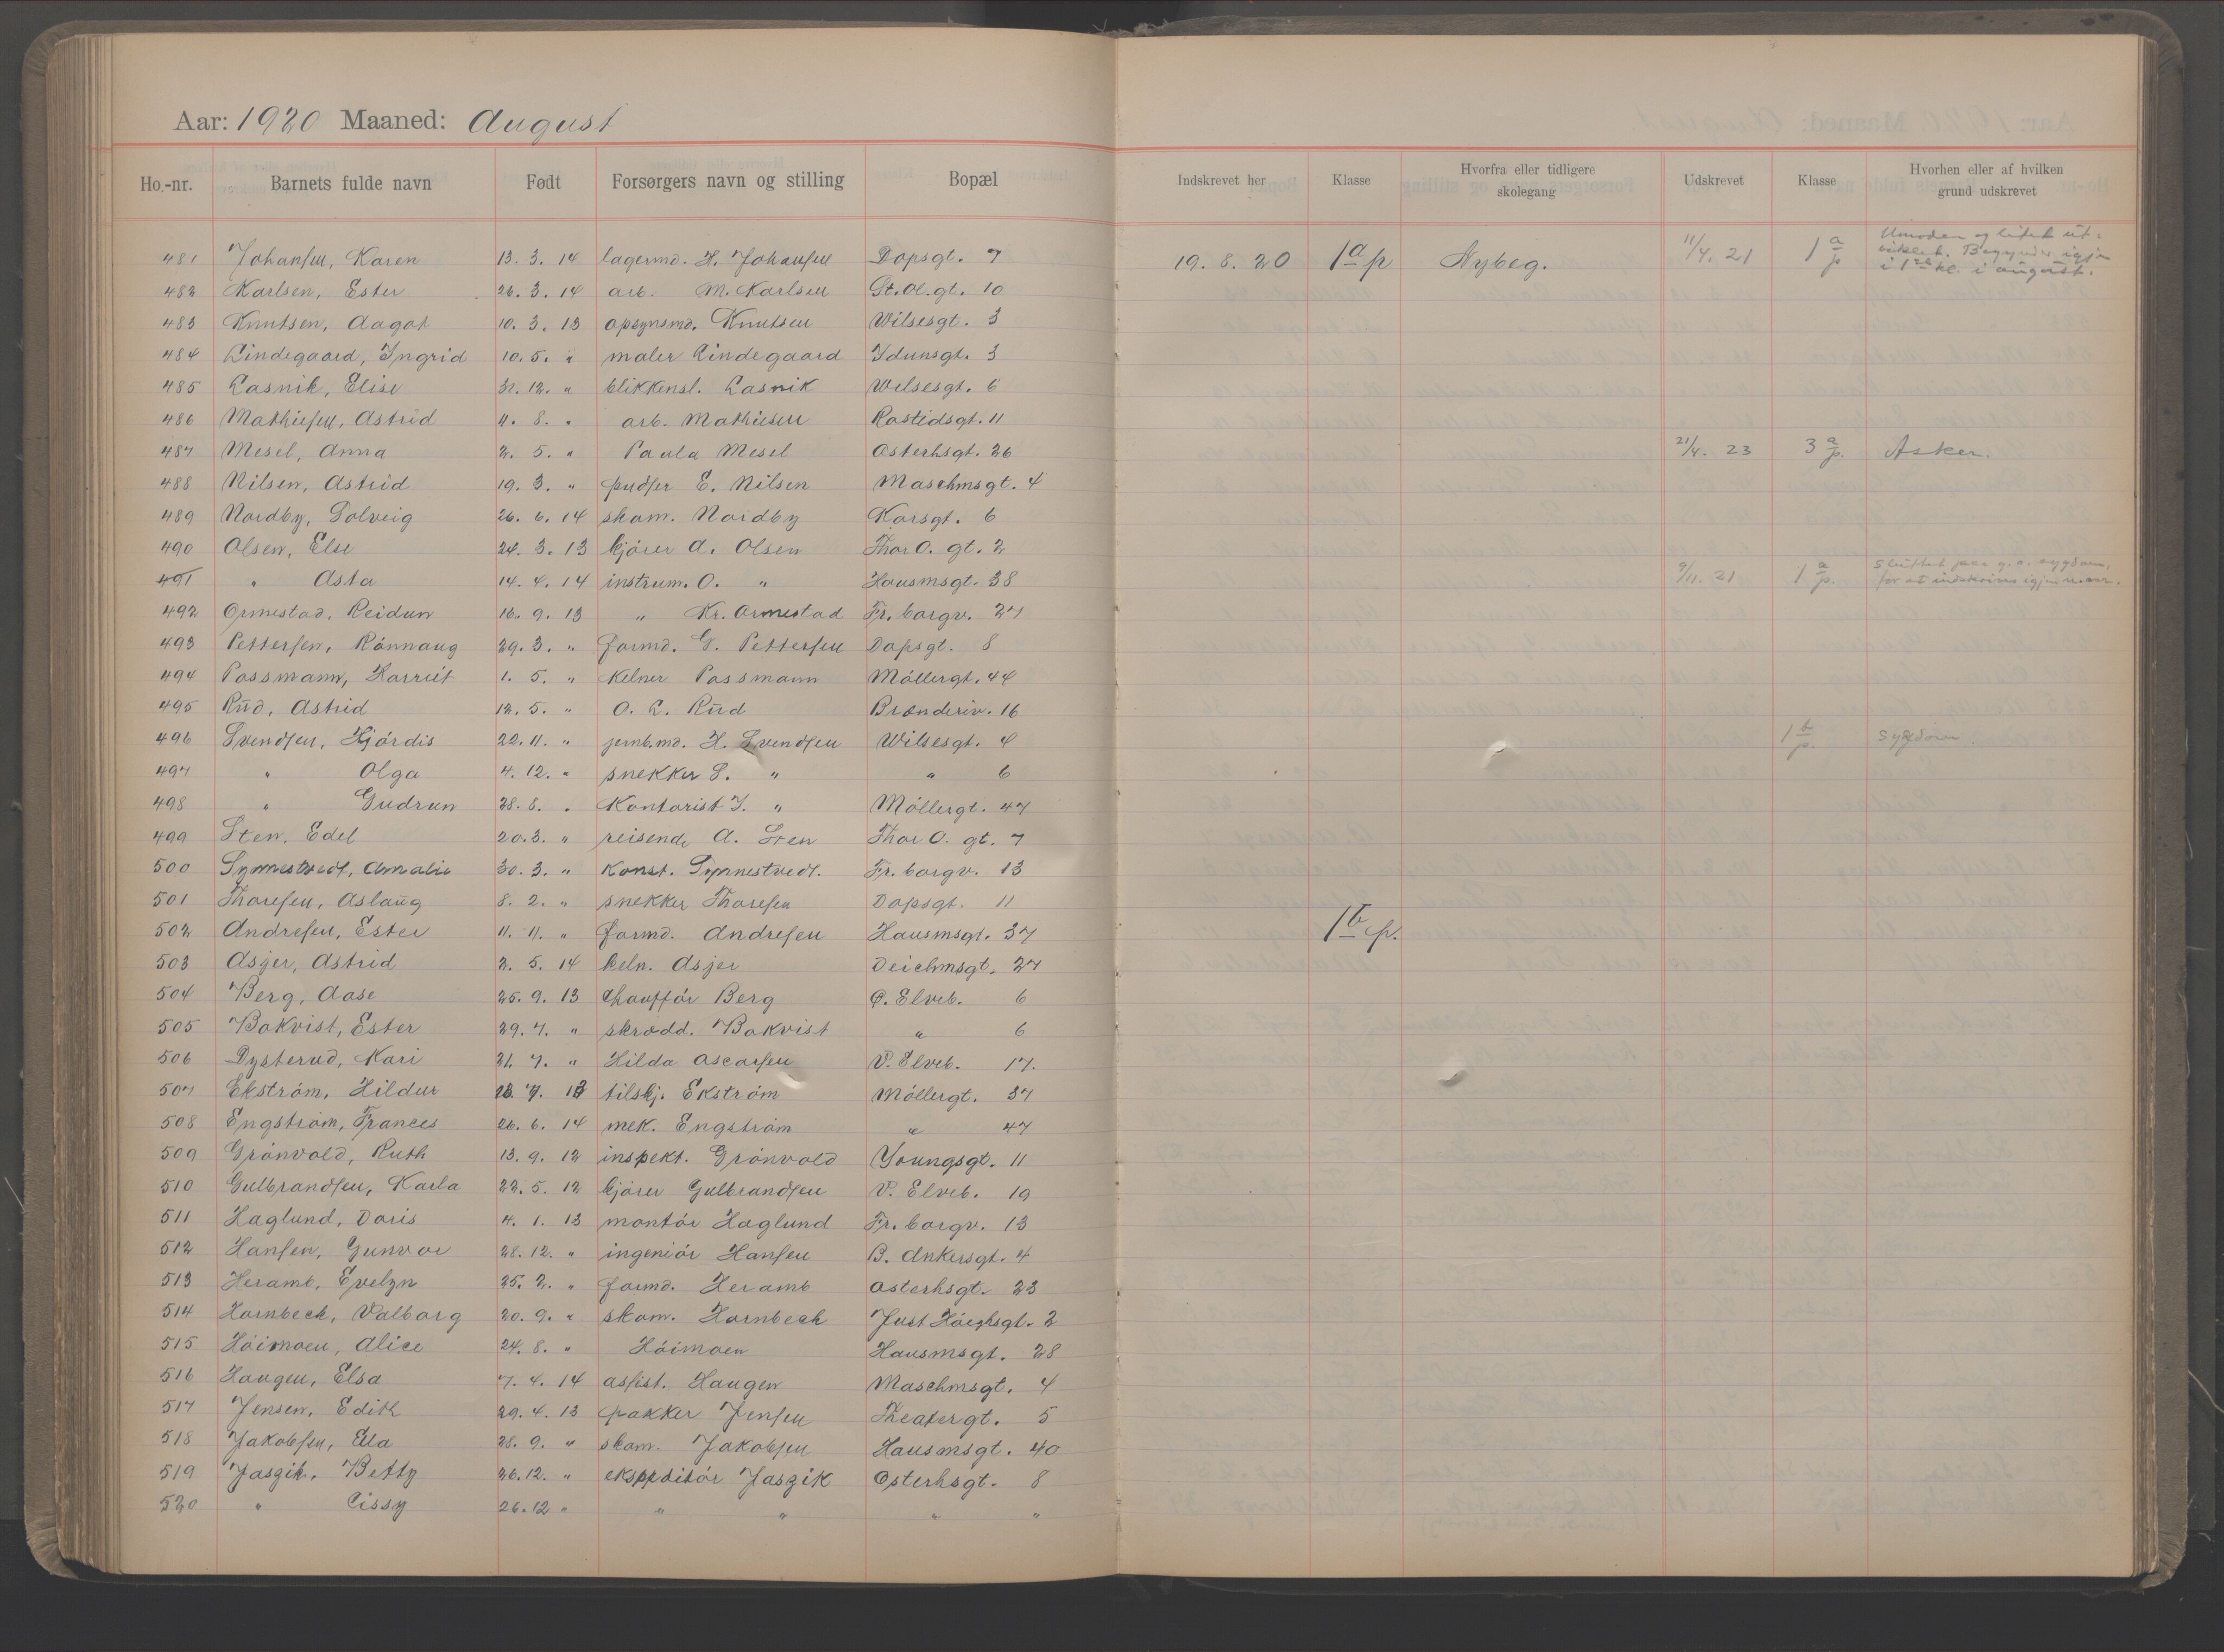 Aar: 1920 Maaned: August
Ho.-nr. Barnets fulde navn Født Forsørgers navn og stilling Bopæl
481 Johansen, Karen 13. 3. 14 lagermd. H. Johansen Dopsgt. 7
482 Karlsen, Ester 26. 3. 14 arb. M. Karlsen St. Ol. gt. 10
483 Knutsen, Aagot 10. 3. 13 opsynsmd. Knutsen Wilsesgt. 3
484 Lindegaard, Ingrid 10. 5. " maler Lindegaard Idunsgt. 3
485 Lasnik, Elise 31. 12. " blikkensl. Lasnik Wilsesgt. 6
486 Mathiesen, Astrid 11. 8. " arb. Mathiesen Rostedsgt. 11
487 Mesel, Anna 2. 5. " Paula Mesel Osterhsgt. 26
488 Nilsen, Astrid 19. 3. " pudser E. Nilsen Maschmsgt. 4
489 Nordby, Solveig 26. 6. 14 skom. Nordby Korsgt. 6
490 Olsen, Else 24. 3. 13 kjører A. Olsen Thor O. gt. 2
491 " Asta 14. 4. 14 instrum. O. " Hausmsgt. 38
492 Ormestad, Reidun 16. 9. 13 " Kr. Ormestad Fr. borgv. 27
493 Pettersen, Rönnaug 29. 3. " formd. G. Pettersen Dopsgt. 8
494 Possmann, Harriet 1. 5. " Kelner Possmann Möllergt. 44
495 Rud, Astrid 12. 5. " O. L. Rud Brenneriv. 16
496 Svendsen, Hjördis 22. 11. " jernb.md. H. Svendsen Wilsesgt. 4
497 " Olga 4. 12. " snekker S. " " 6
498 " Gudrun 28. 8. " Kontorist J. " Möllergt. 47
499 Sten, Edel 20. 3. " reisende A. Sten Thor O. gt. 7
500 Synnestvedt, Amalie 30. 3. " Konst. Synnestvedt. Fr. borgv. 13
501 Thoresen, Aslaug 8. 2. " snekker Thoresen Dopsgt. 11
502 Andresen, Ester 11. 11. " formd. Andresen Hausmsgt. 37
503 Asjer, Astrid 2. 5. 14 keln. Asjer Deichmsgt. 27
504 Berg, Aase 25. 9. 13 chaufför Berg Ø. Elveb. 6
505 Bokvist, Ester 29. 7. " skrædd. Bokvist " 6
506 Dysterud, Kari 31. 7. " Hilda Oscarsen V. Elveb. 17.
507 Ekström, Hildur 23. 7. 13 tilskj. Ekström Möllergt. 37
508 Engström, Frances 26. 6. 14 mek. Engström " 47
509 Grönvold, Ruth 13. 9. 12 inspekt. Grönvold Youngsgt. 11
510 Gulbrandsen, Karla 22. 5. 12 kjører Gulbrandsen V. Elveb. 19
511 Haglund, Doris 4. 1. 13 montör Haglund Fr. borgv. 13
512 Hansen, Gunvor 28. 12. " ingeniör Hansen B. Ankersgt. 4
513 Heramb, Evelyn 25. 2. " formd. Heramb Osterhsgt. 23
514 Hornbeck, Valborg 20. 9. " skom. Hornbeck Just Höeghsgt. 2
515 Höimoen, Alice 24. 8. " Höimoen Hausmsgt. 28
516 Haugen, Elsa 7. 4. 14 assist. Haugen Maschmsgt. 4
517 Jensen, Edith 29. 4. 13 pakker Jensen Theatergt. 5
518 Jakobsen, Ella 28. 9. " skom. Jakobsen Hausmsgt. 40
519 Jasgik, Betty 26. 12. " ekspeditör Jasgik Osterhsgt. 8
520 " Cissy 26. 12 " " " " "
Indskrevet her Klasse Hvorfra eller tidligere skolegang Udskrevet Klasse Hvorhen eller af hvilken grund udskrevet
19. 8. 20 1 a p Nybeg. 11/4. 21 1 a p Umoden og litet ut-
viklet. Begynder igjen
i 1ste kl. i august.
21/4. 23 3 a p. Asker.
9/11. 21 1 a p. Sluttet paa g. a. sygdom,
for at indskrives igjen
1 b p. Sygdom.
1 b p.